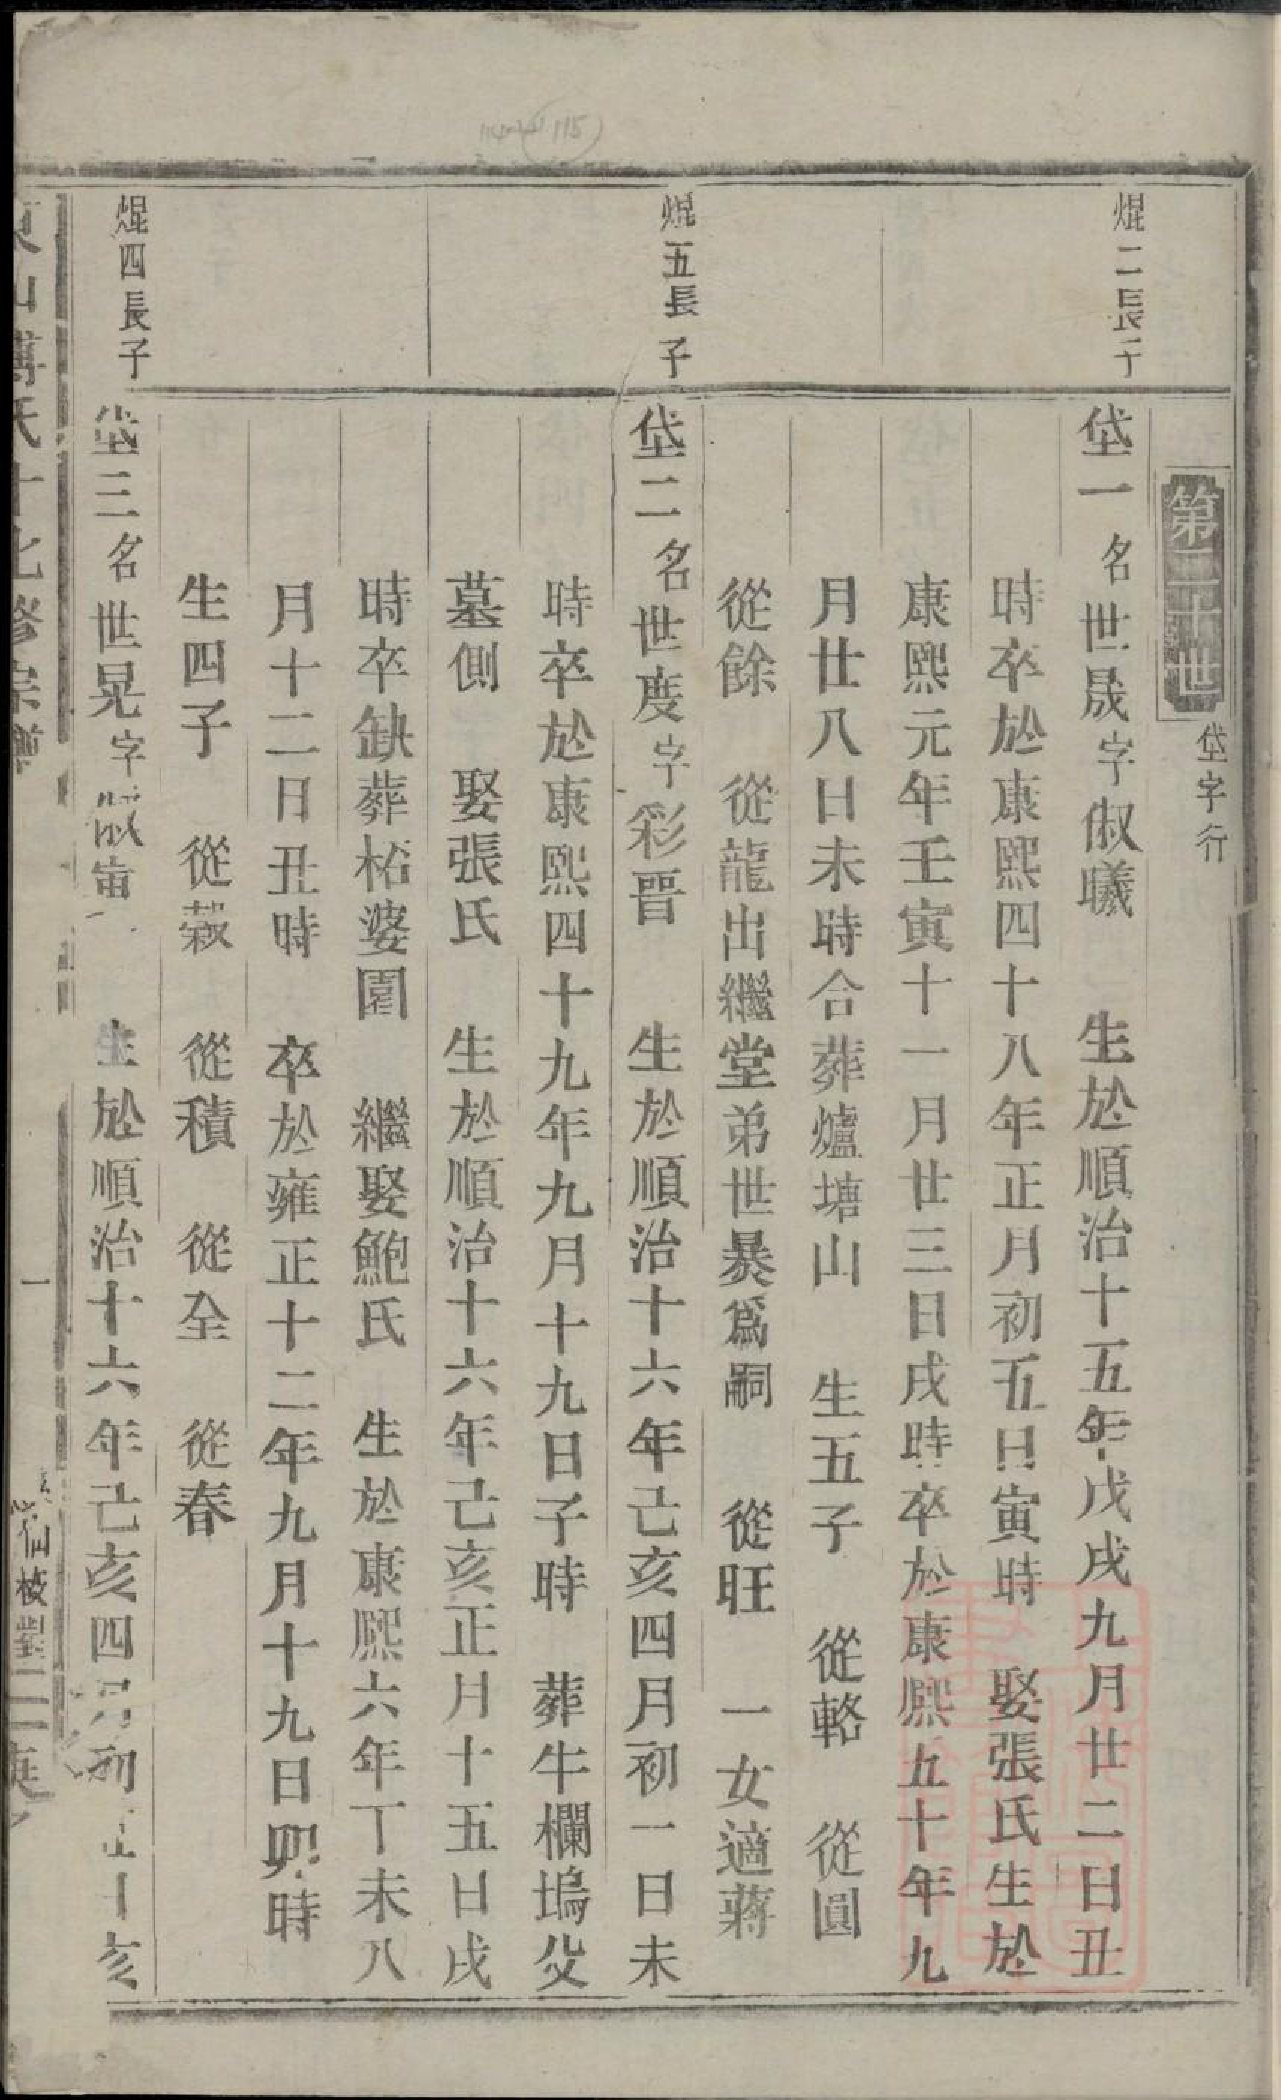 第二十世
垡字行
焜二長子
垡一名世晟字俶曦 生於順治十五年戊戌九月廿二日丑
時卒於康熙四十八年正月初五日寅時 娶張氏生於
康熙元年壬寅十一月廿三日戌時卒於康熙五十年九
月廿八日未時合葬爐塘山 生五子 從輅 從圓
從餘 從龍出繼堂弟世㬥爲嗣 從旺 一女適蔣
焜五長子
垡二名世度字彩晉 生於順治十六年己亥四月初一日未
時卒於康熙四十九年九月十九日子時 葬牛欄塢父
墓側 娶張氏 生於順治十六年己亥正月十五日戌
時卒缺葬柘婆園 繼娶鮑氏 生於康熙六年丁未八
月十二日丑時 卒於雍正十二年九月十九日卯時
生四子 從穀 從積 從全 從春
焜四長子
垡三名世晃字俶 生於順治十六年己亥四月初 亥
東山傅氏十七修宗譜
一